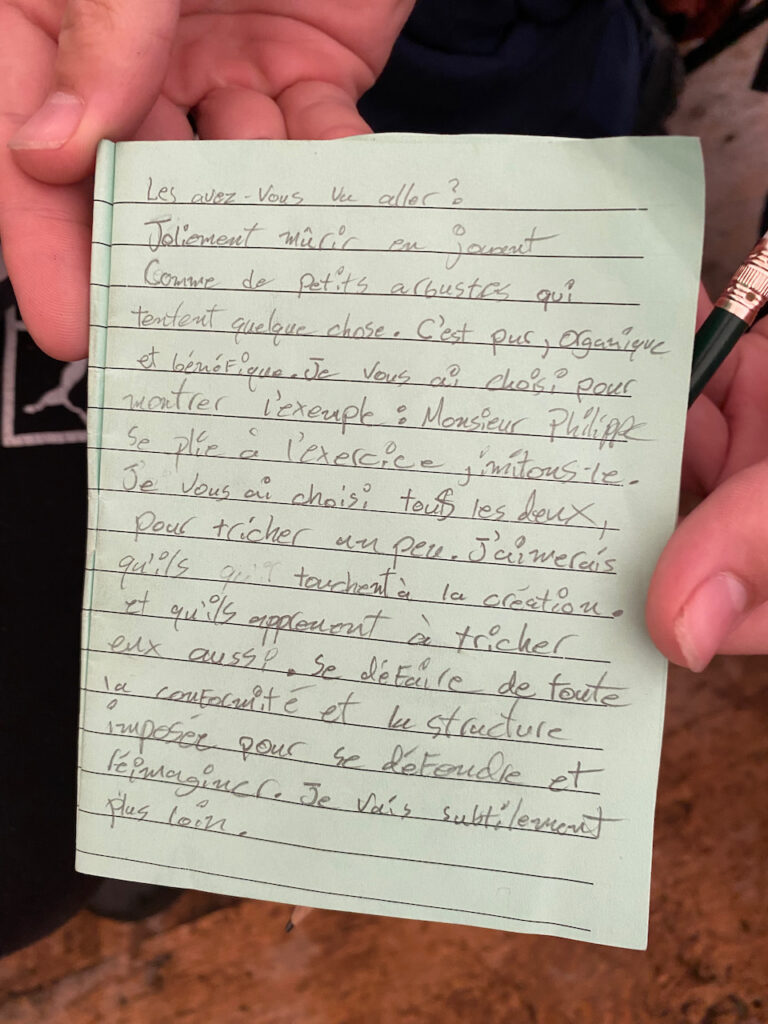 Les avez-vous vu aller?
Joliement mûrir en jouent
Comme de petits arbustes qui
tentent quelque chose. C'est pur, organique
et bénéfique. Je vous ai choisi pour
montrer l'exemple : Monsieur Philippe
se plie à l'exercice, imitons-le.
Je vous ai choisi tous les deux,
pour tricher un peu. J'aimerais
qu'ils touchent à la création.
et qu'ils apprennent à tricher
eux aussi. Se défaire de toute
la conformité et la structure
imposée pour se défendre et
réimaginer. Je vais subtilement
plus loin.